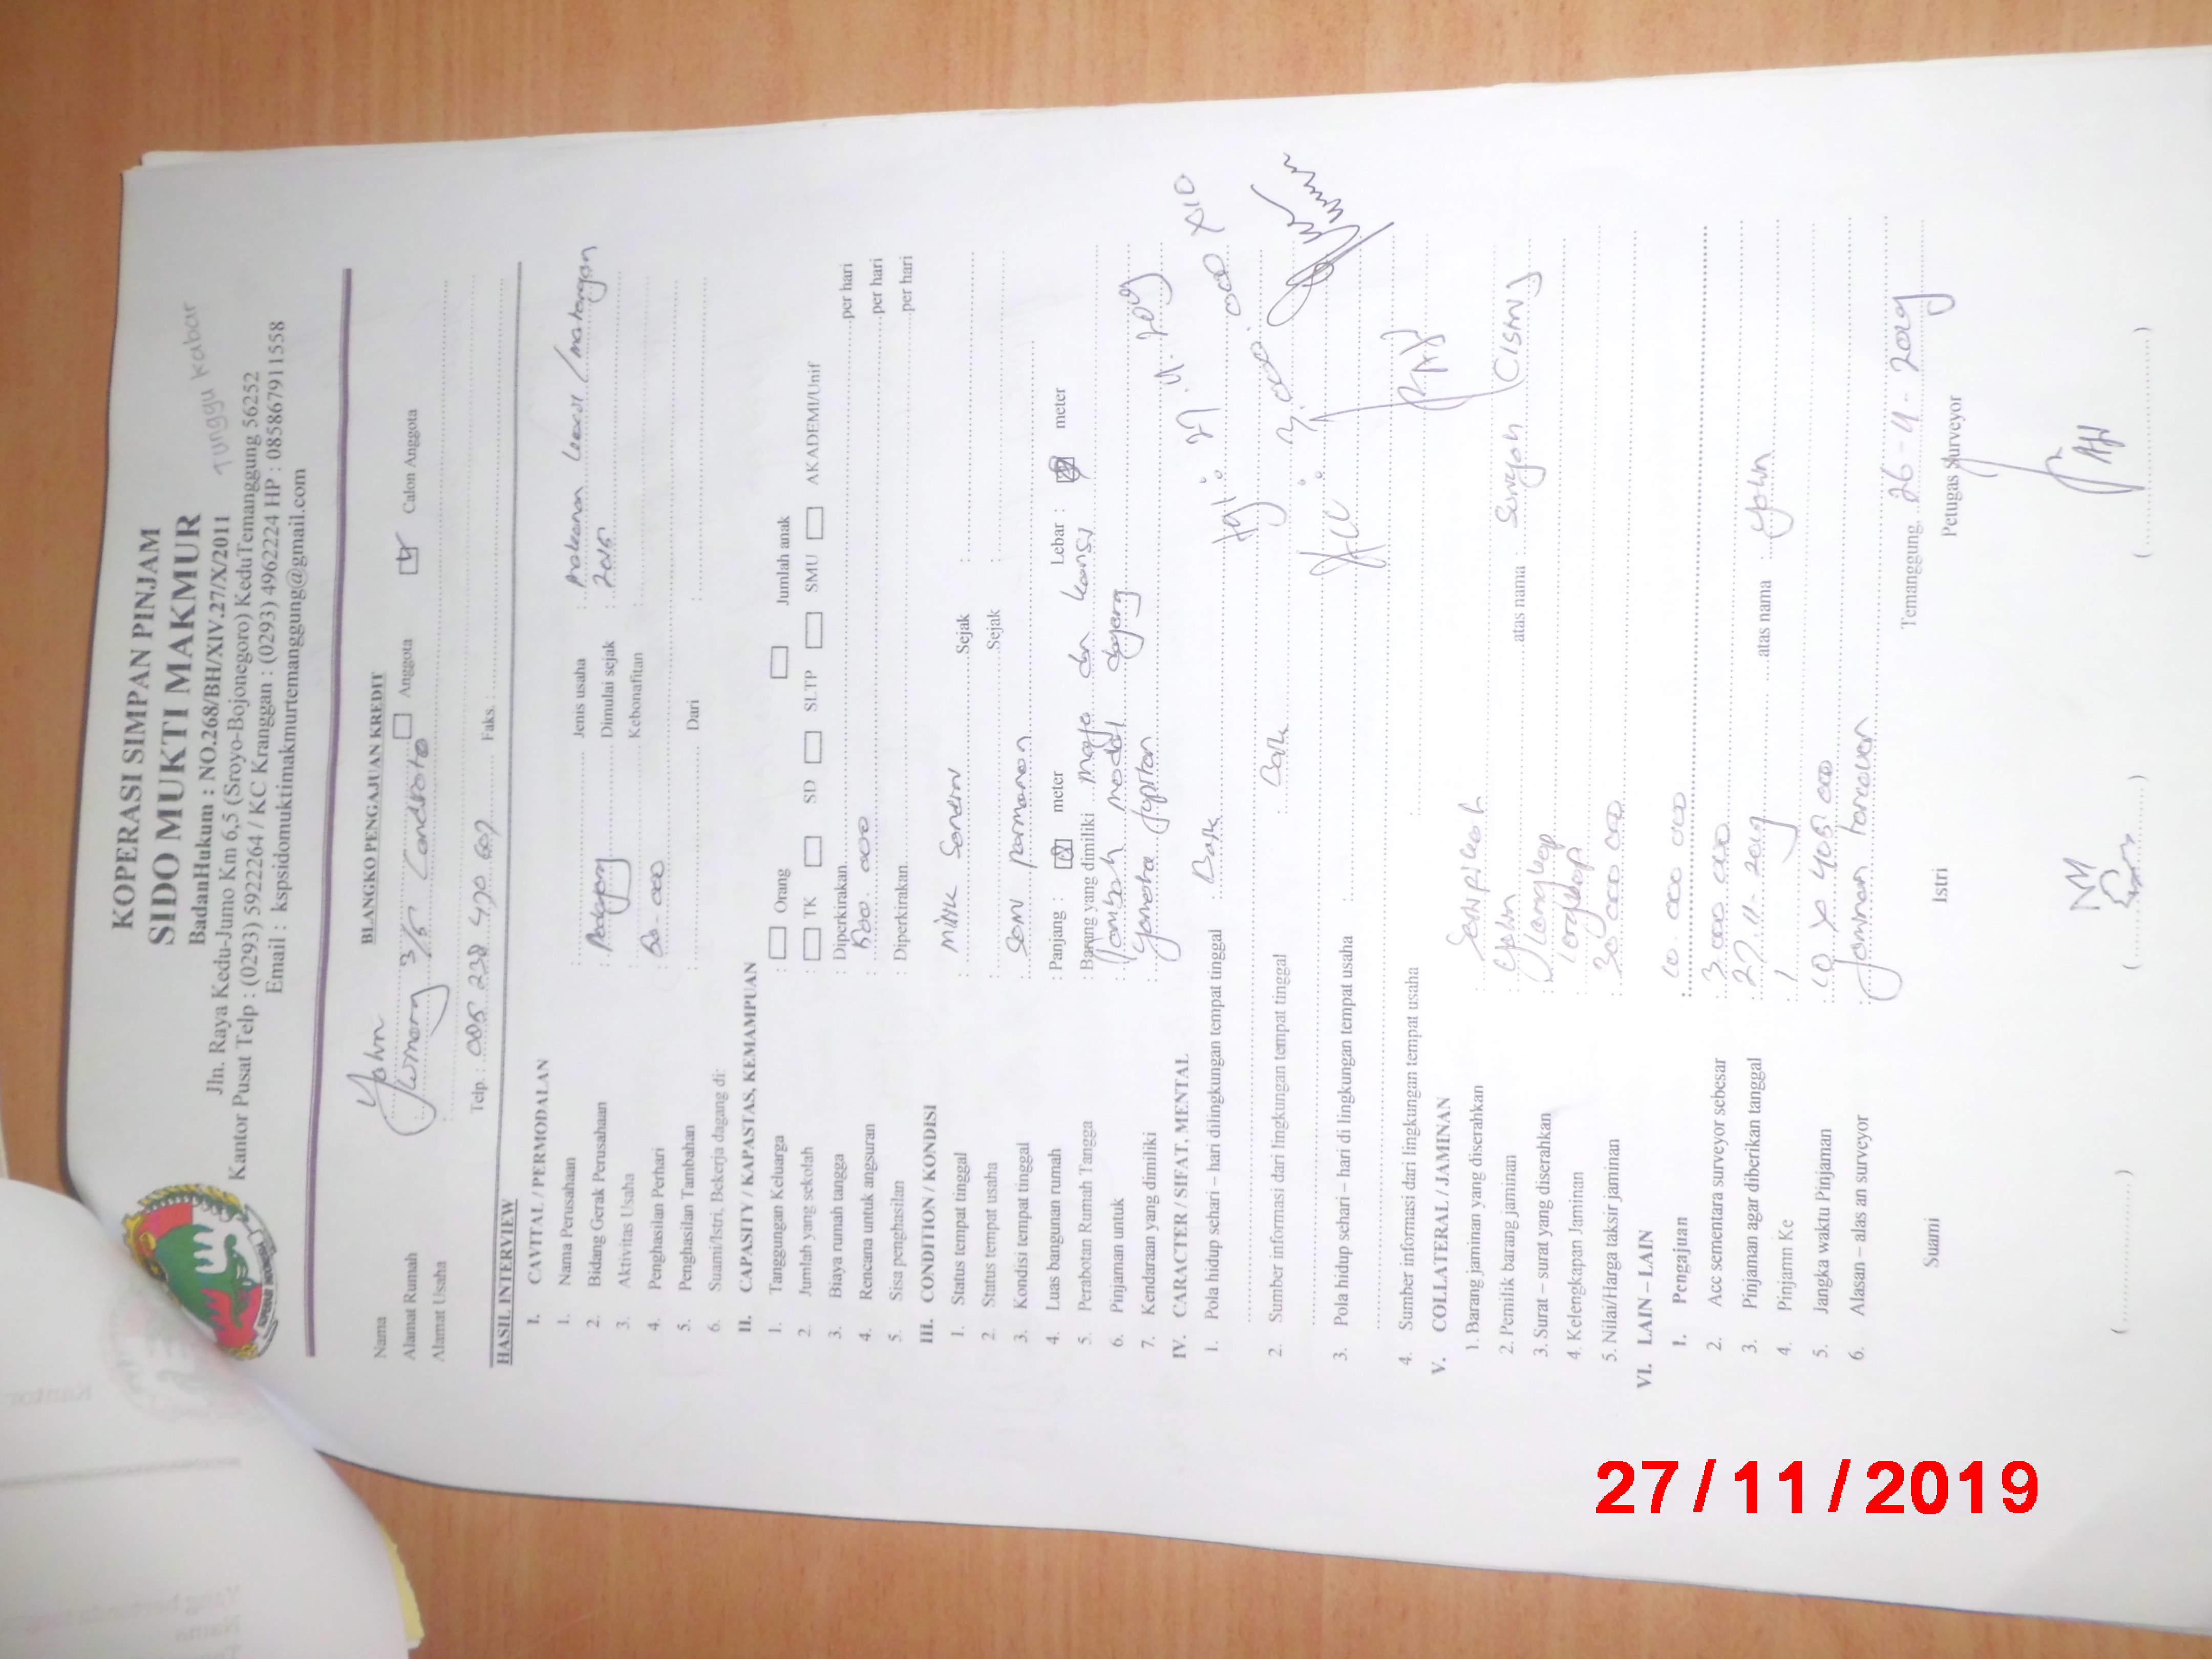 KOPERASI SIMPAN PINJAM
SIDO MUKTI MAKMUR
BadanHukum : NO.268/BH/XIV.27/X/2011
Tunggu kabar
Jln. Raya Kedu-Jumo Km 6,5 (Sroyo-Bojonegoro) KeduTemanggung 56252
Kantor Pusat Telp : (0293) 5922264 / KC Kranggan : (0293) 4962224 HP : 085867911558
Email : kspsidomuktimakmurtemanggung@gmail.com
BLANGKO PENGAJUAN KREDIT
Nama Yahn Anggota Calon Anggota
Alamat Rumah 3/5 Candiroto
Alamat Usaha
Telp. : Faks. :
HASIL INTERVIEW
I. CAVITAL / PERMODALAN
1. Nama Perusahaan : Jenis usaha : makanan
2. Bidang Gerak Perusahaan : Pedagang Dimulai sejak : 2015
3. Aktivitas Usaha Kebonafitan :
4. Penghasilan Perhari : 60.000
5. Penghasilan Tambahan : Dari :
6. Suami/Istri, Bekerja dagang di:
II. CAPASITY / KAPASTAS, KEMAMPUAN
1. Tanggungan Keluarga : Orang Jumlah anak
2. Jumlah yang sekolah : TK SD SLTP SMU AKADEMI/Unif
3. Biaya rumah tangga : Diperkirakan per hari
4. Rencana untuk angsuran : 500.000 per hari
5. Sisa penghasilan : Diperkirakan per hari
III. CONDITION / KONDISI
1. Status tempat tinggal : milik sendiri Sejak :
2. Status tempat usaha : Sejak :
3. Kondisi tempat tinggal : semi permanen
4. Luas bangunan rumah : Panjang : meter Lebar : meter
5. Perabotan Rumah Tangga : Barang yang dimiliki meja dan kursi
6. Pinjaman untuk : tambah modal dagang
7. Kendaraan yang dimiliki : yamaha jupiter
IV. CARACTER / SIFAT, MENTAL
1. Pola hidup sehari – hari dilingkungan tempat tinggal : Baik
tgl : 27.11.2019
2. Sumber informasi dari lingkungan tempat tinggal : Baik
3. Pola hidup sehari – hari di lingkungan tempat usaha :
Acc : 3.000.000 X10
4. Sumber informasi dari lingkungan tempat usaha :
V. COLLATERAL / JAMINAN
1. Barang jaminan yang diserahkan :
2. Pemilik barang jaminan : Yahn atas nama :
3. Surat – surat yang diserahkan : lengkap
4. Kelengkapan Jaminan : lengkap
5. Nilai/Harga taksir jaminan : 30 000 000
VI. LAIN – LAIN
1. Pengajuan : 10 000 000
2. Acc sementara surveyor sebesar : 3.000.000
3. Pinjaman agar diberikan tanggal : 27.11.2019
4. Pinjamn Ke : 1 atas nama : Yahn
5. Jangka waktu Pinjaman : 10 X 405.000
6. Alasan – alas an surveyor : jaminan tercover
Temanggung 26-11-2019
Suami Istri Petugas Surveyor
27/11/2019